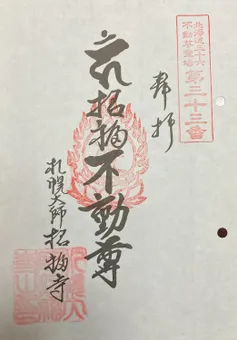 北海道三十六
不動尊霊場
第二十三番
奉拝
招福不動尊
札幌大師 招福寺